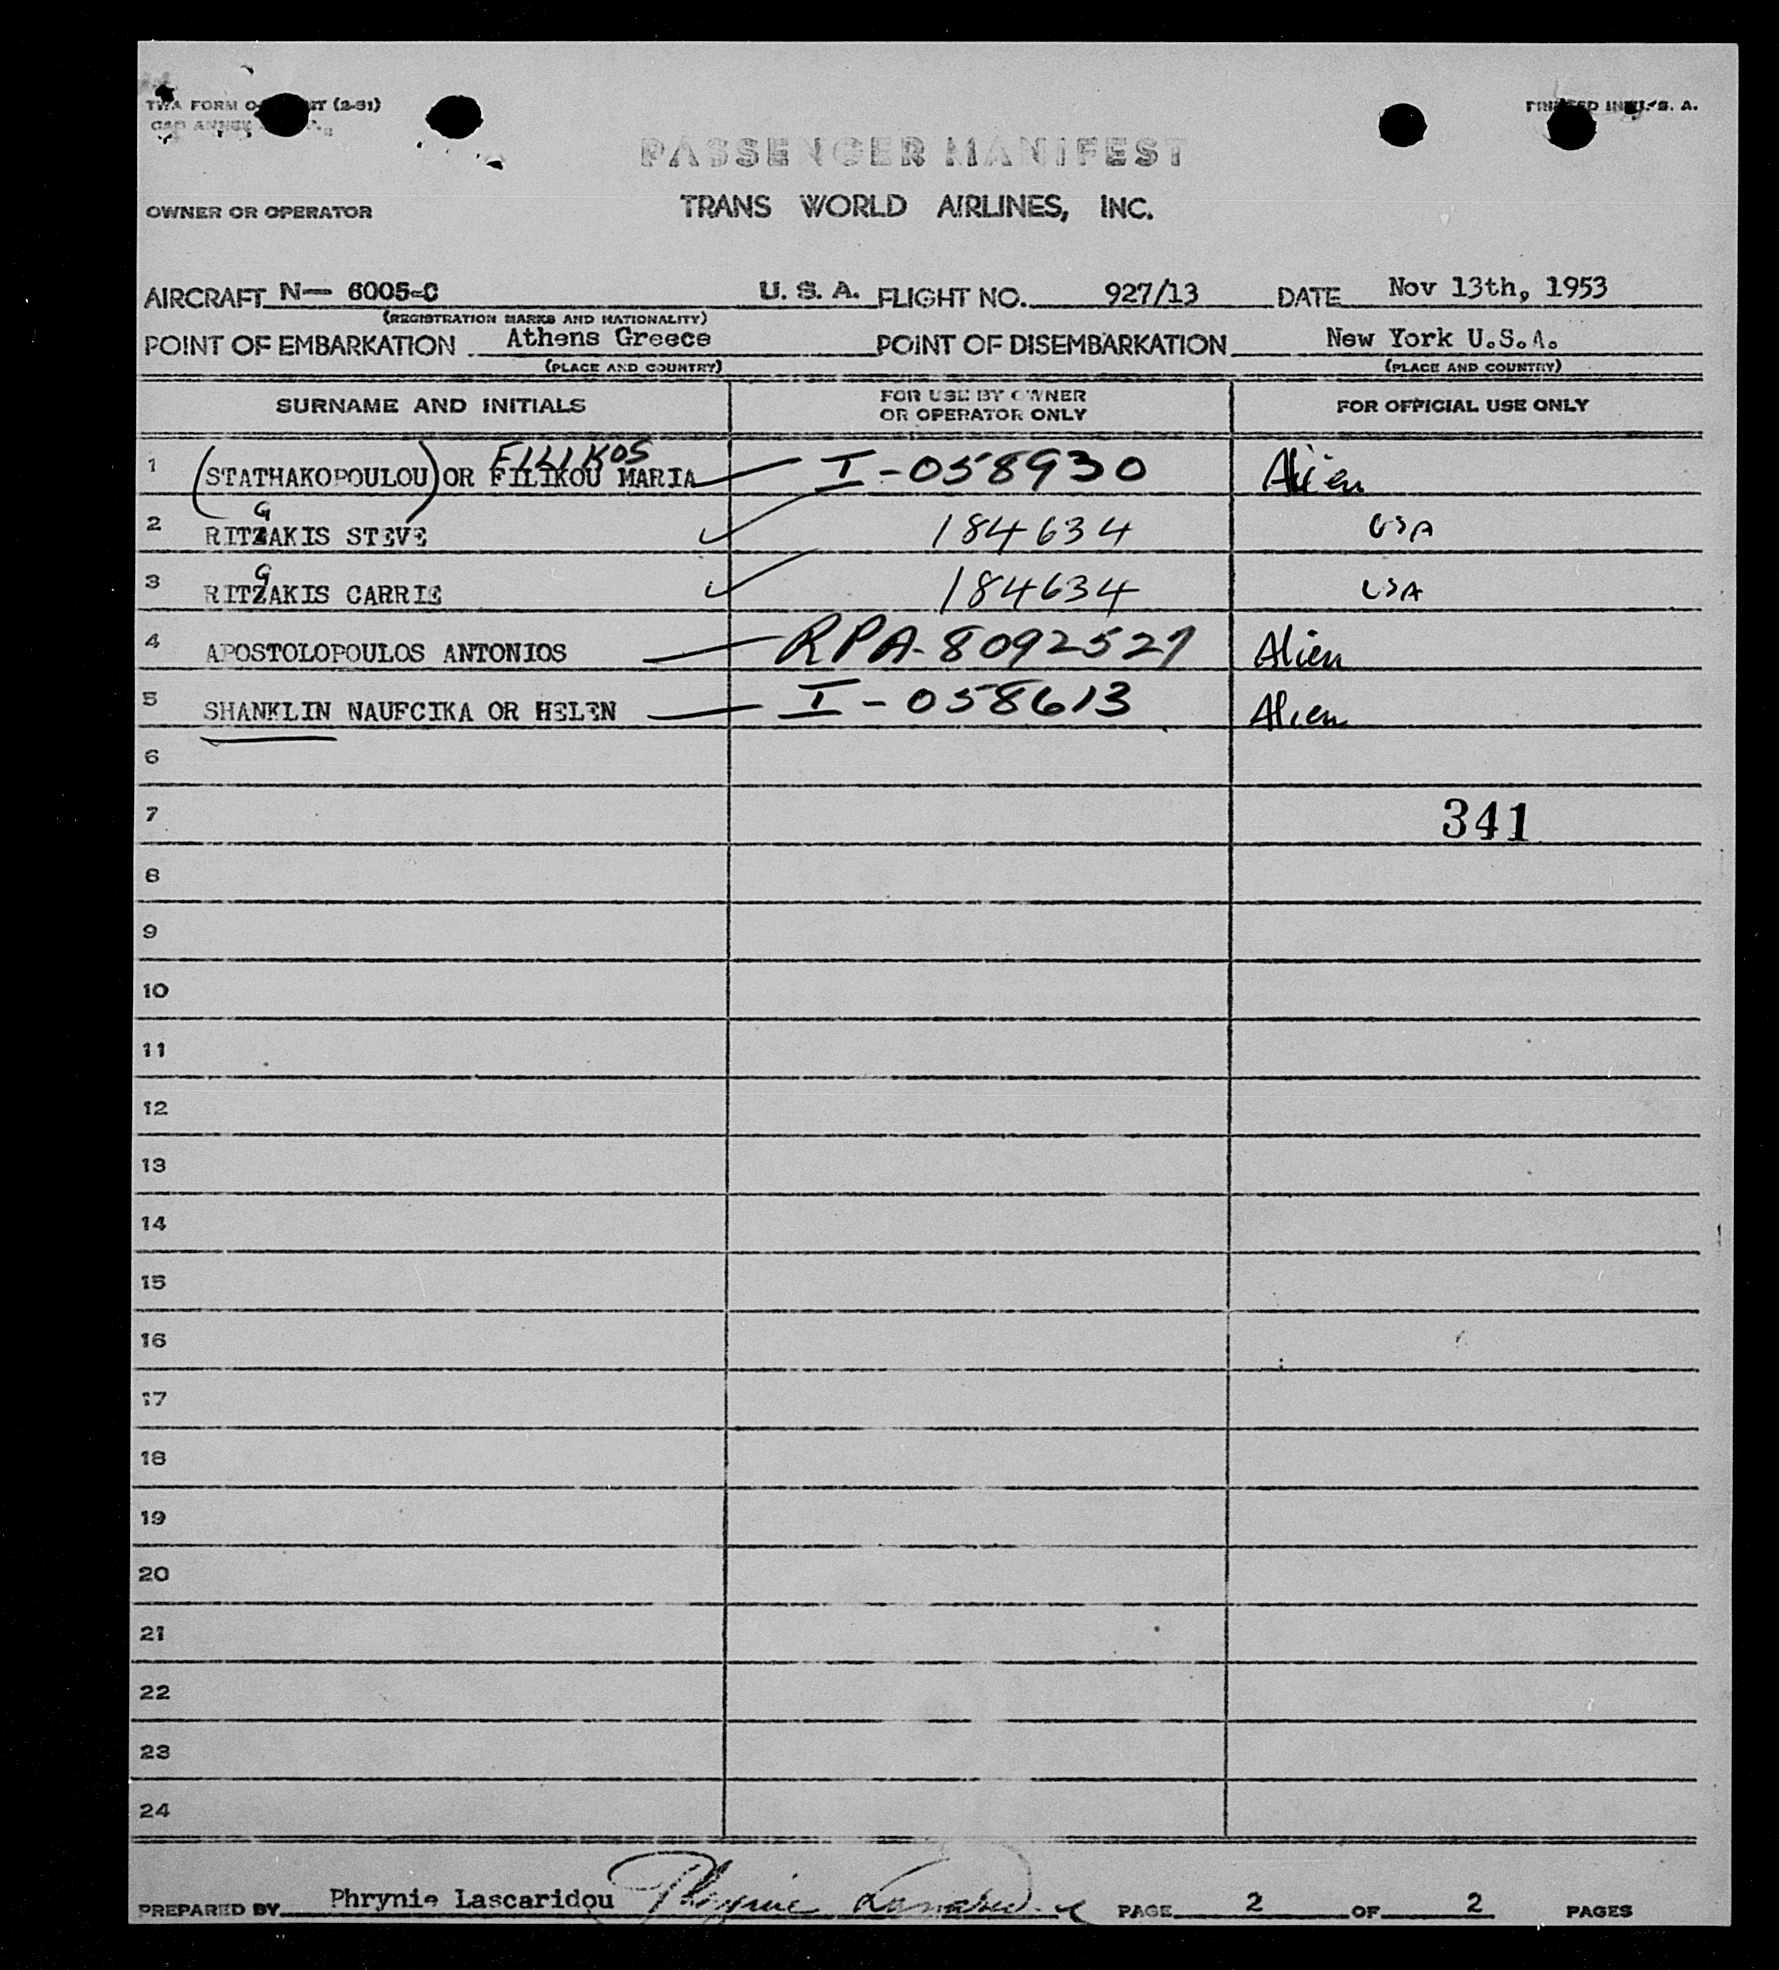 TWA FORM (2-51)
PRINTED IN U. S. A.
PASSENGER MANIFEST
OWNER OR OPERATOR TRANS WORLD AIRLINES, INC.
AIRCRAFT N— 6005-C U. S. A. FLIGHT NO. 927/13 DATE Nov 13th, 1953
(REGISTRATION MARKS AND NATIONALITY)
POINT OF EMBARKATION Athens Greece POINT OF DISEMBARKATION New York U.S.A.
(PLACE AND COUNTRY) (PLACE AND COUNTRY)
SURNAME AND INITIALS FOR USE BY OWNER OR OPERATOR ONLY FOR OFFICIAL USE ONLY
FILIKOS
1 (STATHAKOPOULOU) OR FILIKOU MARIA I-058930 Alien
G
2 RITZAKIS STEVE 184634 USA
G
3 RITZAKIS CARRIE 184634 USA
4 APOSTOLOPOULOS ANTONIOS RPA-8092527 Alien
5 SHANKLIN NAUFCIKA OR HELEN I-058613 Alien
6
7 341
8
9
10
11
12
13
14
15
16
17
18
19
20
21
22
23
24
PREPARED BY Phrynie Lascaridou Phrynie PAGE 2 OF 2 PAGES